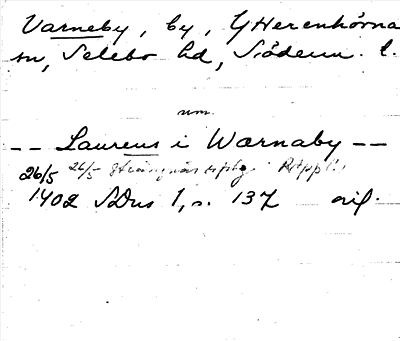 Varneby, by, Ytterenhörna
sn, Selebo hd, Söderm. l.
um.
-- Laurens i Wærnaby --
26/5 26/5 Strängnäs
1402 SDns 1, s. 137 orig.